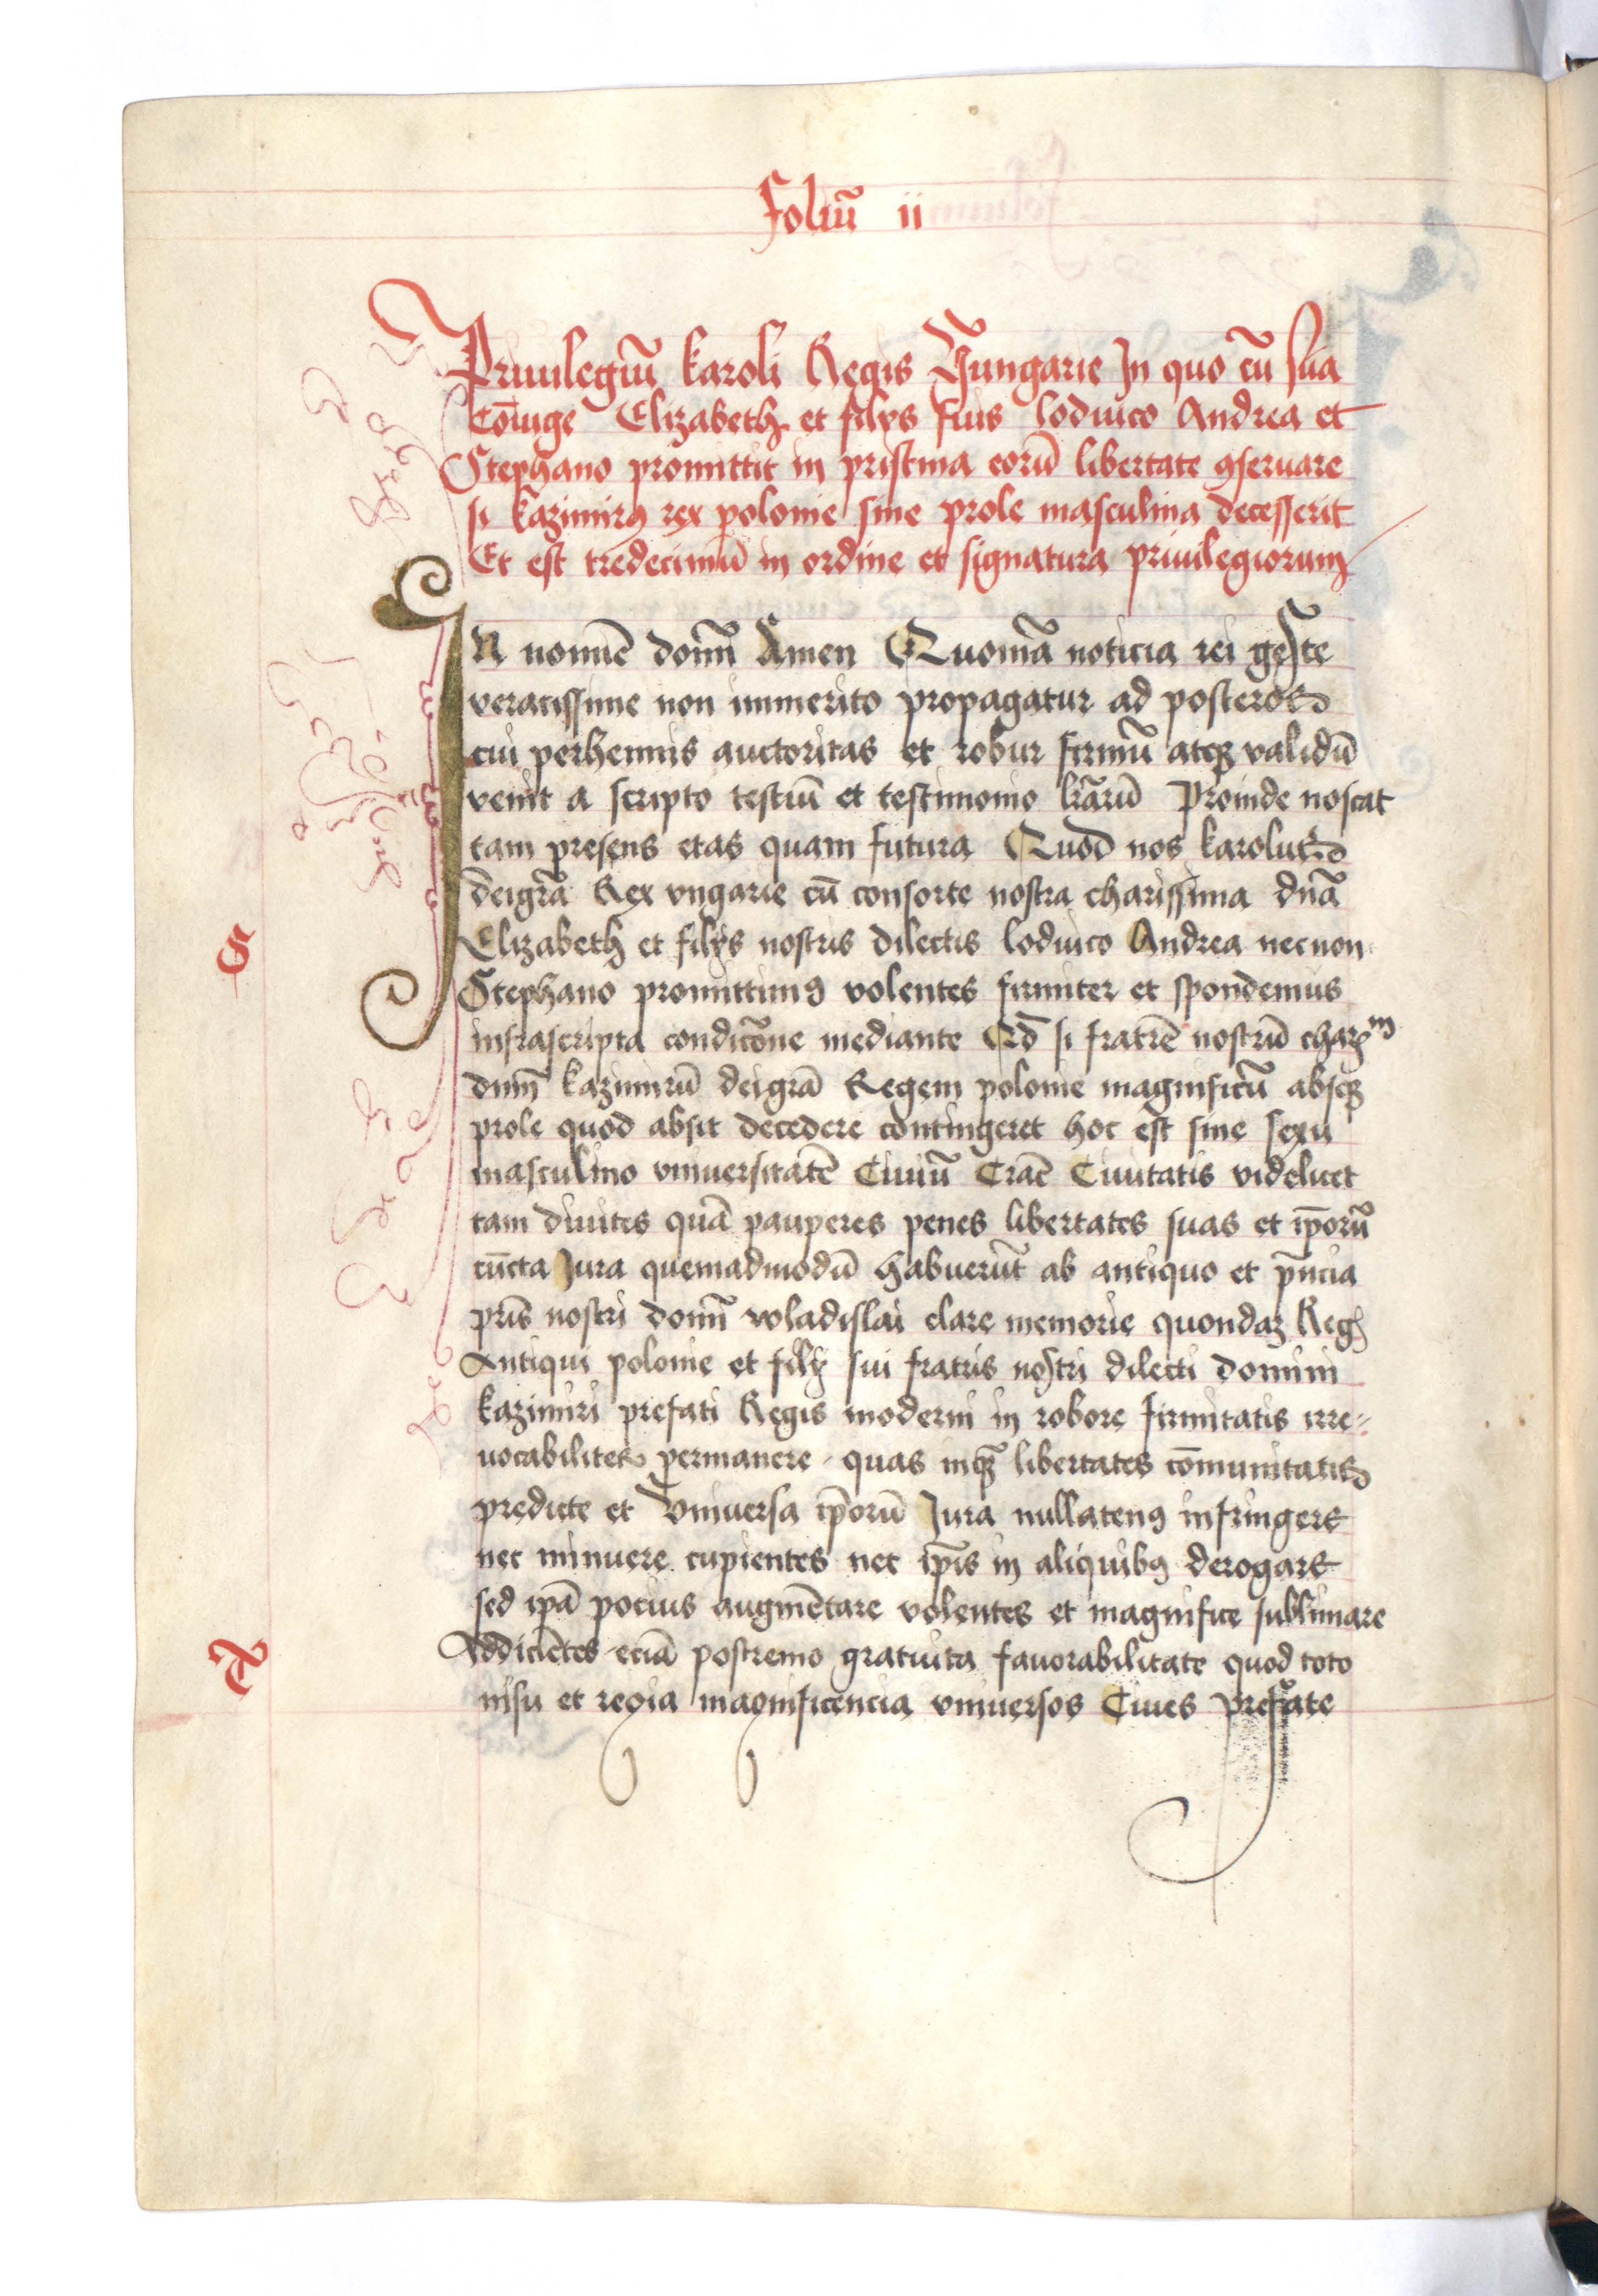 Foliū ii
Priuilegiū karoli Regis Vngarie In quo cū sua
Cōiuge Elizabeth et filijs suis lodouico Andrea et
Stephano promittit in pristina eorū libertate ꝯseruare
si kazimirꝰ rex polonie sine prole masculina decesserit
Et est tredecimū in ordine et signatura priuilegiorum
IN nomīe domī Amen Quoniā noticia rei geste
veracissime non immerito propagatur ad posteros
cui perhennis auctoritas et robur firmū atqꝫ validū
venit a scripto testiū et testimonio lr̄arū Proinde noscat
tam presens etas quam futura Quod nos karolus
deigr̄a Rex vngarie cū consorte nostra charissima dn̄a
Elizabeth et filijs nostris dilectis lodouico Andrea necnon
Stephano promittimꝰ volentes firmiter et spondemus
infrascripta condicōne mediante Qd̄ si fratrē nostrū
dnm̄ kazimirū deigrā Regem polonie magnificū absqꝫ
prole quod absit decedere contingeret hoc est sine sexu
masculino vniuersitatē Ciuiū Crac̄ Ciuitatis videlicet
tam diuites quā pauperes penes libertates suas et ip̄orū
cūcta Jura quemadmodū habuerūt ab antiquo et
pr̄is nostri domī wladislai clare memorie quondaꝫ Reg
Antiqui polonie et filij sui fratris nostri dilecti domini
kazimiri prefati Regis moderni in robore firmitatis irre⸗
uocabiliter permanere quas inqꝫ libertates cōmunitatis
predicte et vniuersa ip̄orū Jura nullatenꝰ infringere
nec minuere cupientes nec ip̄is in aliquibꝰ derogare
sed ip̄a pocius augmētare volentes et magnifice sublimare
Addiciētes eciā postremo gratuita fauorabilitate quod toto
nisu et regia magnificencia vniuersos Ciues prefate